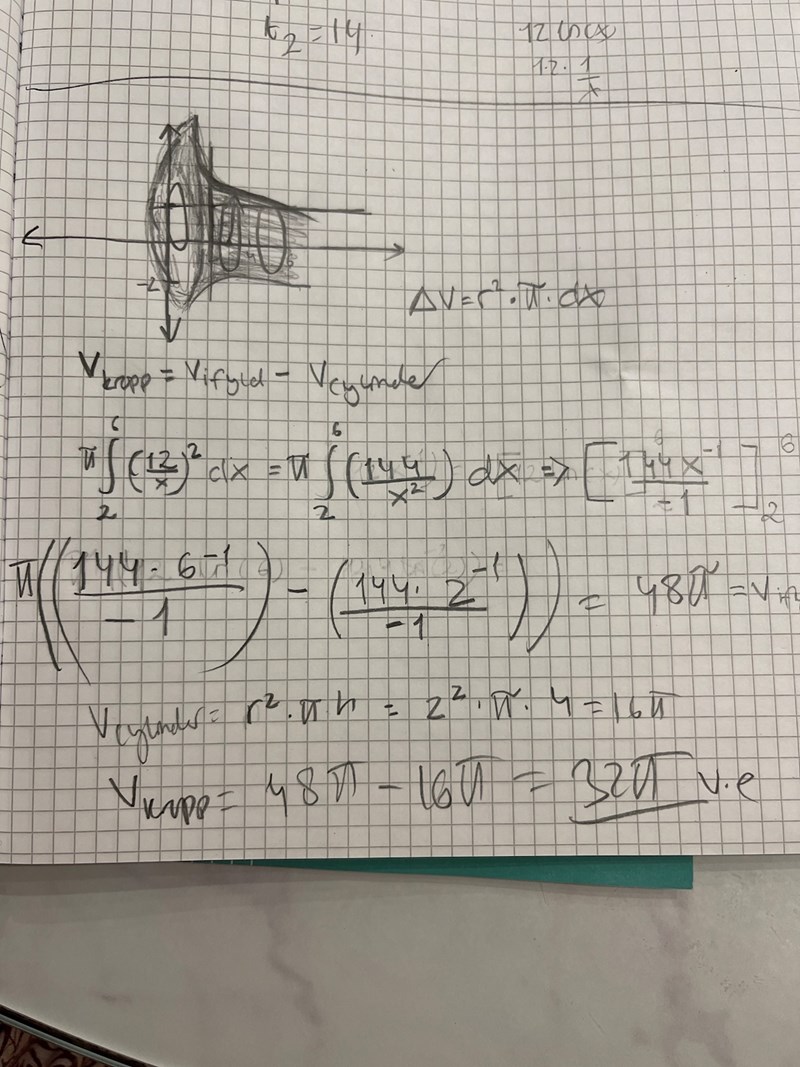 t₂ = 14
12 ln(x)
12 · 1/x
-2
ΔV = r² · π · dx
V_kropp = V_ifylld − V_cylinder
π ∫₂⁶ (12/x)² dx = π ∫₂⁶ (144/x²) dx => [144x⁻¹/−1]₂⁶
π((144 · 6⁻¹/−1) − (144 · 2⁻¹/−1)) = 48π =
V_cylinder = r² · π h = 2² · π · 4 = 16π
V_kropp = 48π − 16π = 32π v.e